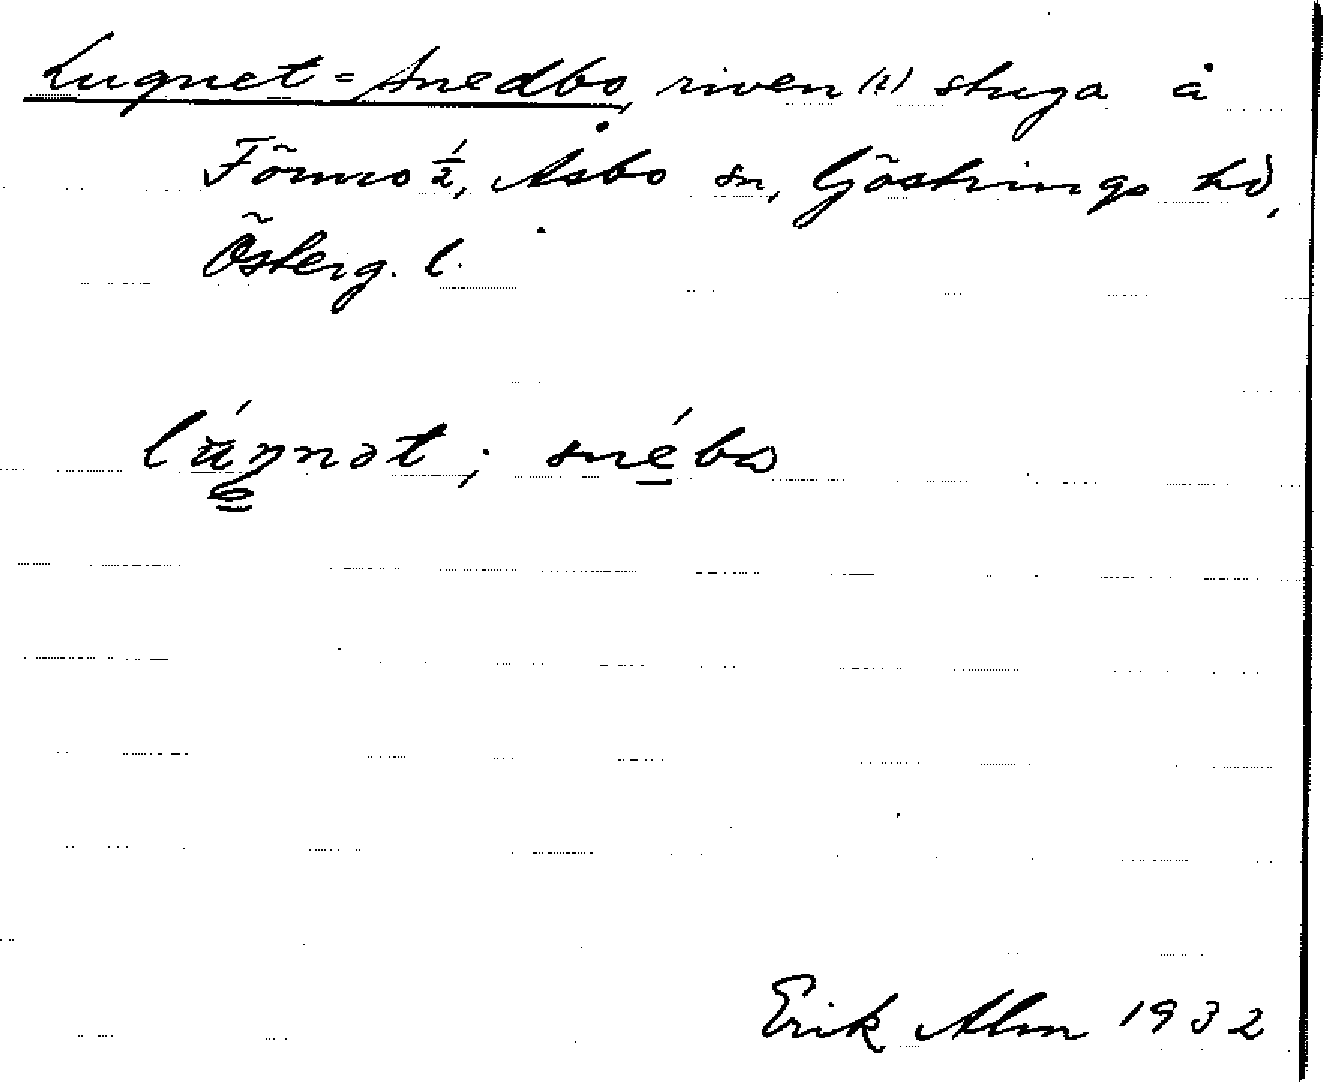 Lugnet = Snedbo, riven (1) stuga å
Förmo 1/2, Åsbo sn, Göstrings hd,
Österg. l.
lúŋnət; snébo
Erik Alm 1932